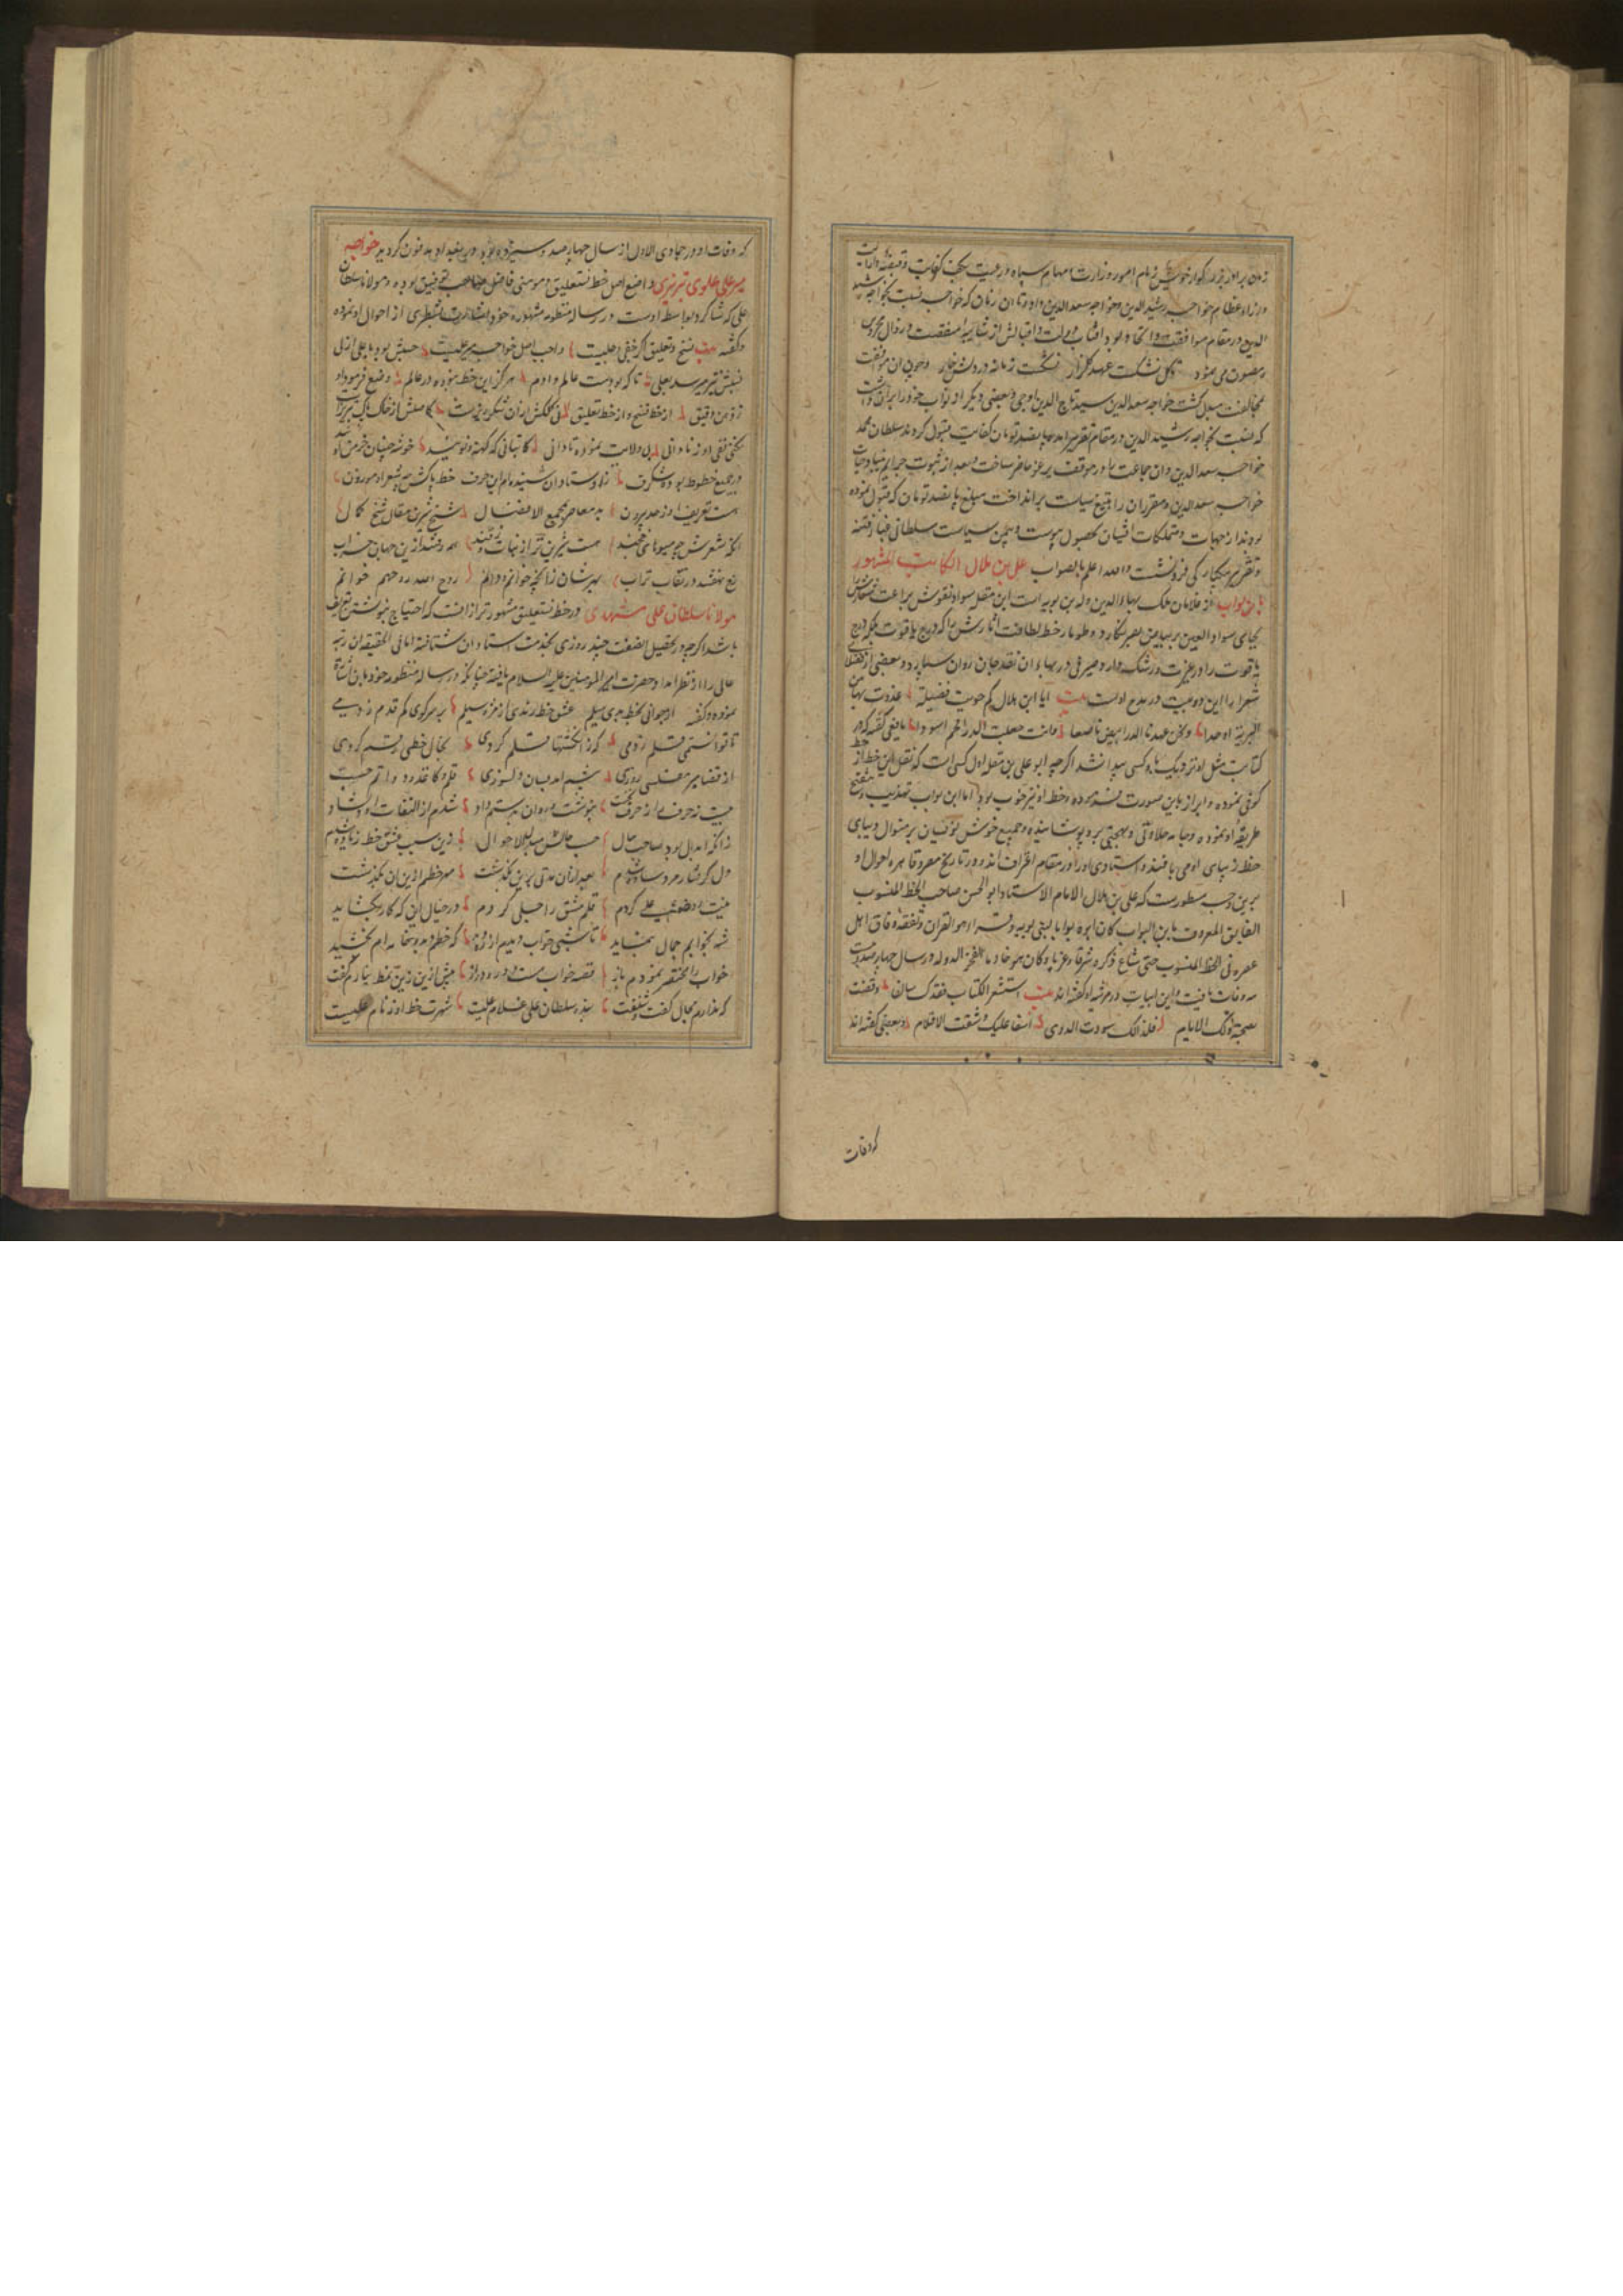 زمان برادر بزرگوار خویش زمام امور وزارت و مهام سپاه و رعیت بکف کفایت
و ازاء عظام خواجه رشید الدین و خواجه سعد الدین داد و تا آن زمان که خواجه نسبت بخواجه رشید
الدین در مقام موافقت بود آفتاب دولت و اقبالش از
و مصون می نمود گل نشکست عهد گلزار نشکست زمانه در دلش خار و چون آن موافقت
بمخالفت مبدل گشت خواجه سعد الدین سید تاج الدین آوجی و بعضی دیگر از نواب خود را بران داشت
که نسبت بخواجه رشید الدین در مقام تقریر آمده پانصد تومان کفایت قبول کردند سلطان محمد
خواجه سعد الدین و آن جماعت را در موقف یرغو حاضر ساخت و بعد از ثبوت جرایم
خواجه سعد الدین و مقرران را بتیغ سیاست برانداخت مبلغ پانصد تومان که قبول نموده
بودند از جهات و متملکات ایشان بحصول پیوست و بیمن سیاست سلطانی غبار فتنه
و تقریر یکبارگی فرونشست و الله اعلم بالصواب علی بن هلال الکاتب المشهور
بابن بواب از غلامان ملک بهاء الدوله بن بویه است ابن مقله سواد نقوش براعت
بجای سواد العین بر بیاض بصر نگارد و طومار خط لطافت آثارش را که درج یاقوت بلکه درج
یاقوت را در غیرت و رشک دارد صیرفی در بهاء آن نقد جان روان سپارد و بعضی از فضلای
شعرا را این دو بیت در مدح اوست بیت ایا ابن هلال کم حویت فضیلة غدوت بها من
البریة اوحدا ونحن عهدنا الدر ابیض ناصعا وانت جعلت الدر افحم اسودا یافعی گفته که در
کتابت مثل او نزدیک باو کسی پیدا نشد اگرچه ابو علی بن مقله اول کسی است که نقل این خط از خط
کوفی نموده و ابراز باین صورت فرموده و خط او نیز خوب بود اما ابن بواب تهذیب و تنقیح
طریقه او نموده و جامه حلاوتی و بهجتی برو پوشانیده و جمیع خوش نویسان بر منوال دیبای
خط زیبای او می بافند و استادی او را در مقام اعتراف اند و در تاریخ مصر و قاهره احوال او
برین وجه مسطورست که علی بن هلال الامام الاستاد ابو الحسن صاحب الخط المنسوب
الفایق المعروف بابن البواب کان ابوه بوابا لبنی بویه وقرا هو القران وتفقه وفاق اهل
عصره فی الخط المنسوب حتی شاع ذکره شرقا وغربا وکان هو خادما لفخر الدوله در سال چهارصد و بیست
سه وفات یافت و این ابیات در مرثیه او گفته اند بیت استشعر الکتاب فقدک سالفا وقضت
بصحة ذلک الایام فلذلک سودت الدوی اسفا علیک وشقت الاقلام و بعضی گفته اند
که وفات
که وفات او در جمادی الاول از سال چهارصد و سیزده بود و در بغداد مدفون گردید خواجه
میر علی علوی تبریزی واضع اصل خط نستعلیق و مومنی فاضل صاحب توفیق بوده و مولانا سلطان
علی که شاگرد بواسطه اوست در رساله منظومه مشهوره خود شطری از احوال او نموده
و گفته بیت نسخ و تعلیق گر خفی و جلیست واضع اصل خواجه میر علیست حسبش بود با علی ازلی
نسبش نیز میرسد بعلی تا که بودست عالم و آدم هرگز این خط نبوده در عالم وضع فرمود او
ز ذهن دقیق از خط نسخ و از خط تعلیق نی کلکش ازان شکر ریزست کاصلش از خاک پاک تبریزست
نکنی نفی او ز نادانی بی ولایت نبوده تا دانی کاتبانی که کهنه و نو شدند خوشه چینان خرمن او
در جمیع خطوط بوده شگرف ز استادان شنیده ام این حرف خط پاکش چو شعر او موزون
هست تعریف او ز حد بیرون بد معاصر بمجمع الافضال شیخ شیرین مقال شیخ کمال
آنکه شعرش چو میوه های خجند هست شیرین تر از نبات و ز قند همه رفتند ازین جهان خراب
رخ نهفتند در نقاب تراب بهر شان ز آنچه خوانم و دانم روح الله روحهم خوانم
مولانا سلطان علی مشهدی در خط نستعلیق مشهورتر از آنست که احتیاج بنوشتن تعریف
باشد اگرچه در تحصیل الصنعت چند روزی بخدمت استادان شتافته اما فی الحقیقه آن رتبه
عالی را از نظر امداد حضرت امیر المومنین علیه السلام یافته چنانکه در رساله منظومه خود باین اشارة
نموده و گفته از جوانی بخط بدی میلم عشق خط راندی از مژه سیلم بر سر کوی کم قدم زدمی
تا توانستمی قلم زدمی که ز انگشتها قلم کردی بخیال خطی رقم کردی
از قضا میر مفلسی روزی شبم آمد بسان دلسوزی قلم و کاغذ و دواتم جست
بیت نه حرف را ز حرف نخست بنوشت و روان بدستم داد شدم از التفات او دلشاد
زانکه ابدال بود صاحب حال حسب حالش مبدل الاحوال زین سبب عشق خط زیاده شدم
دل گرفتار مرد ساده شدم بعد ازان مدتی برین بگذشت سر خطم از این آن بگذشت
نیت روضه علی کردم قلم مشق را جلی کردم در خیال این که کار بگشاید
شه بخوابم جمال بنماید تا شبی خواب دیدم از ره که خطم دید و جامه ام بخشید
خواب را مختصر نمودم باز قصه خواب هست دور و دراز بیش ازین زین نمط نیارم گفت
که ندارم مجال گفت و شنفت بنده سلطان علی غلام علیست شهرت خط او ز نام علیست